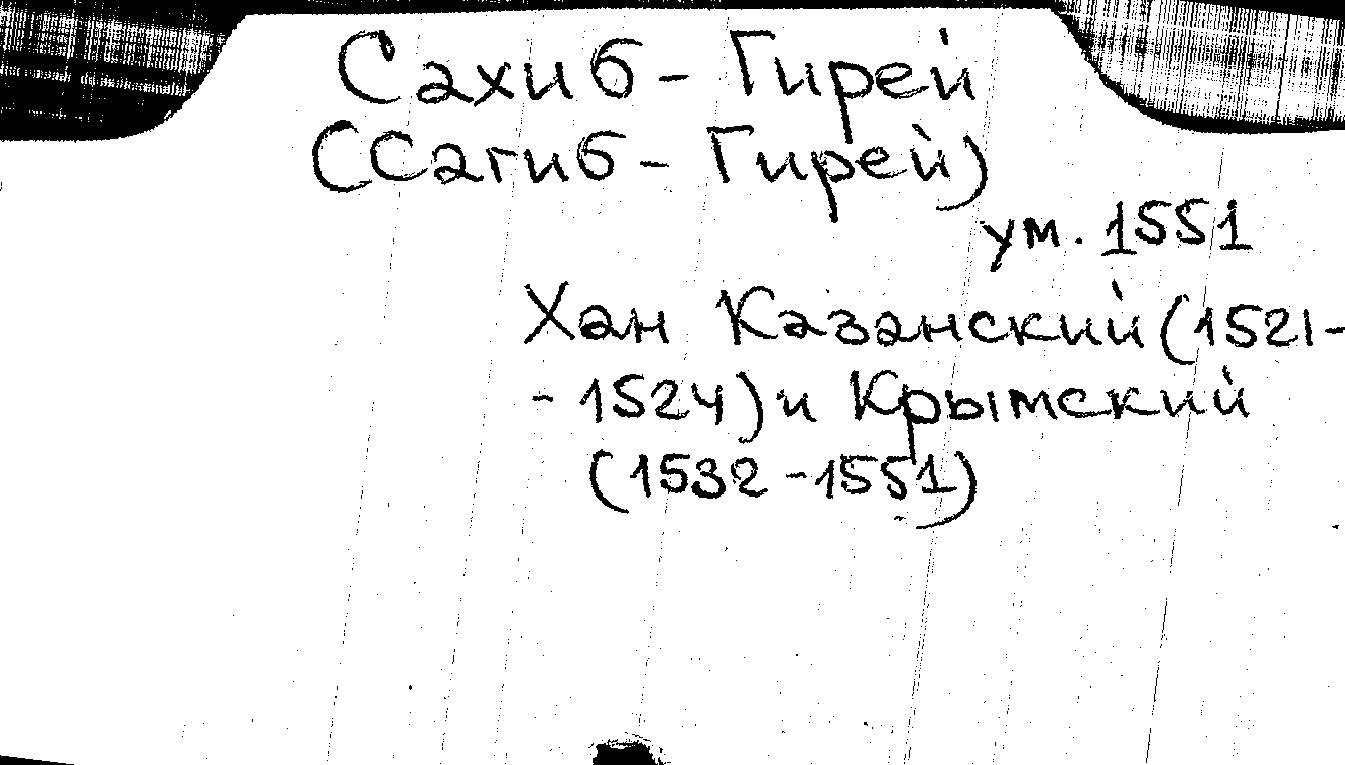 Сахиб - Гирей
(Сагиб - Гирей)
ум. 1551
Хан Казанский (1521-
- 1524) и Крымский
(1532 - 1551)